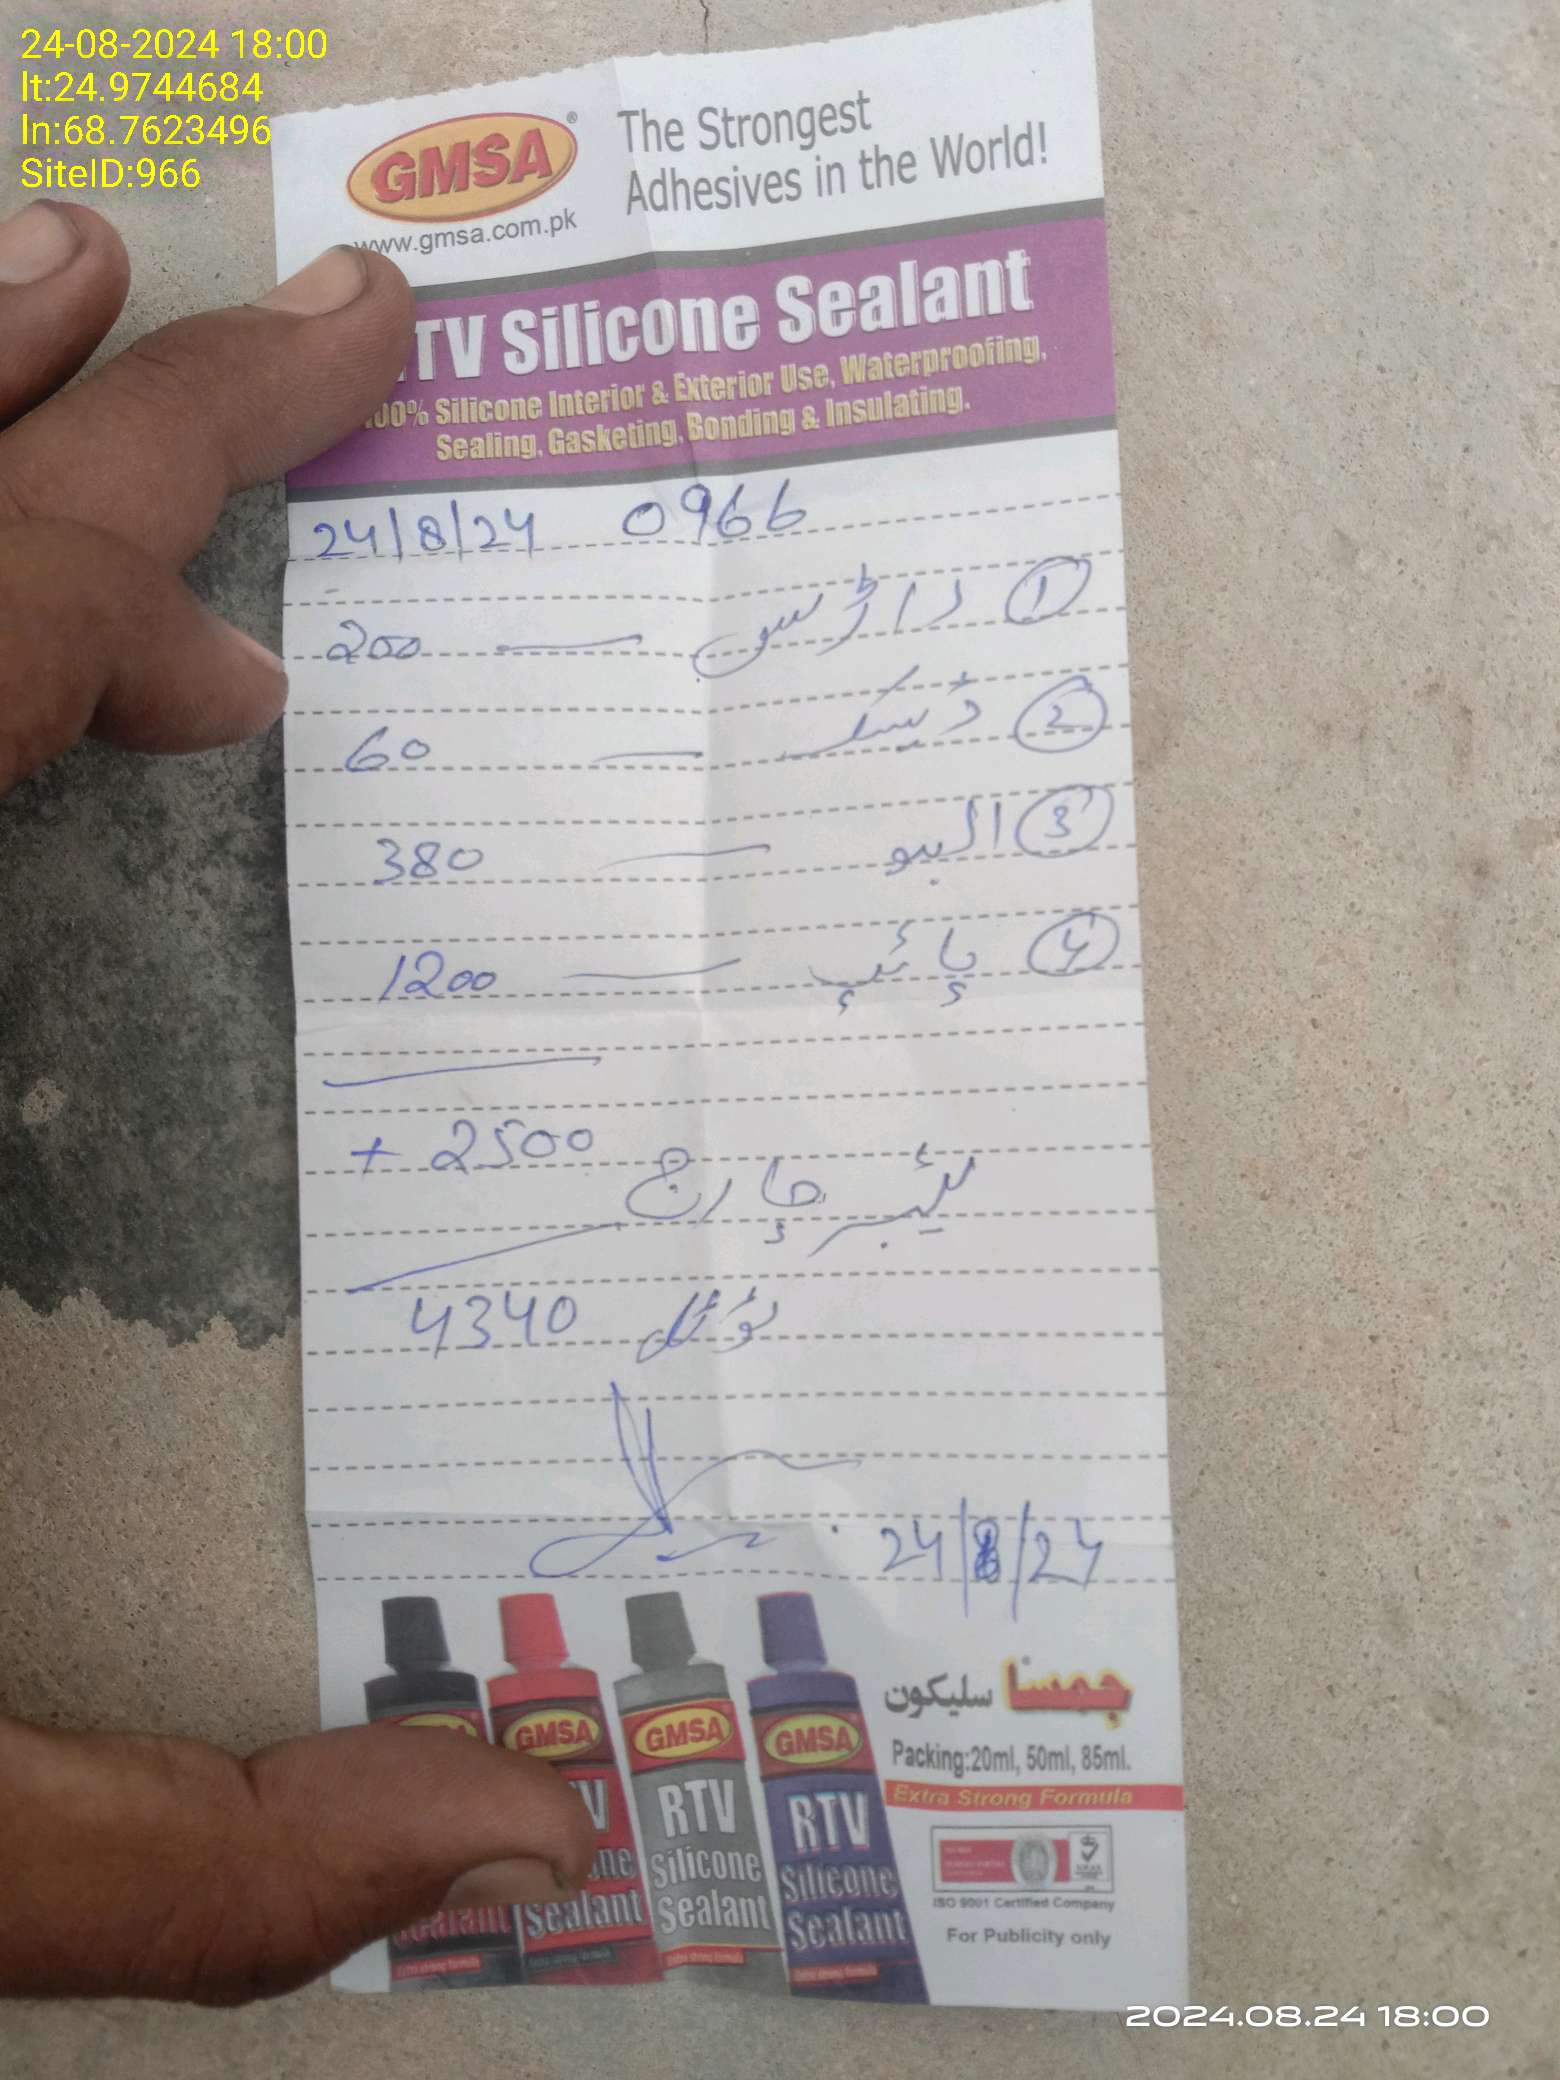 24-08-2024 18:00
lt:24.9744684
ln:68.7623496
SiteID:966
GMSA®
www.gmsa.com.pk
The Strongest
Adhesives in the World!
RTV Silicone Sealant
100% Silicone Interior & Exterior Use, Waterproofing,
Sealing, Gasketing, Bonding & Insulating.
24/8/24 0966
① راڑس — 200
② ڈسک — 60
③ البو — 380
④ پائپ — 1200
+ 2500
لیبر چارج
4340 ٹوٹل
24/8/24
GMSA
RTV
Silicone
Sealant
GMSA
RTV
Silicone
Sealant
GMSA
RTV
Silicone
Sealant
جمسا سلیکون
Packing:20ml, 50ml, 85ml.
Extra Strong Formula
ISO 9001 Certified Company
For Publicity only
2024.08.24 18:00